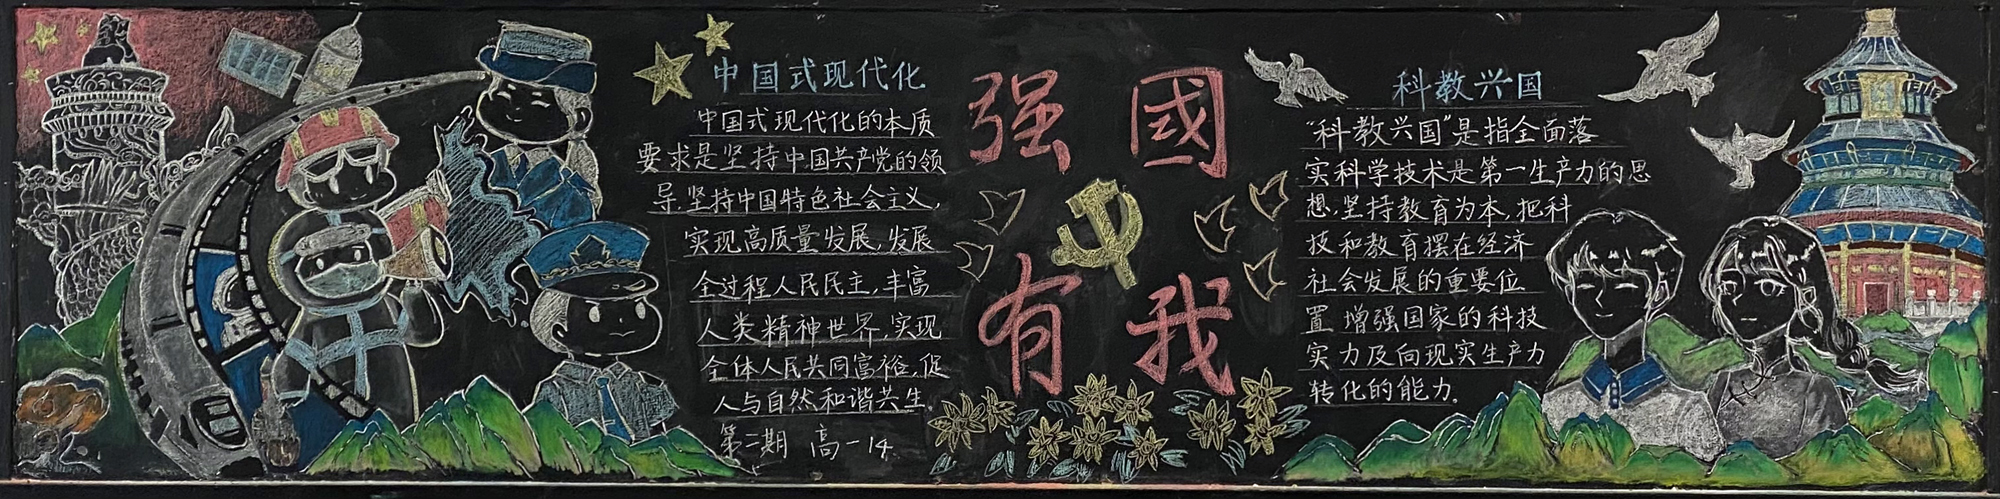 中国式现代化
中国式现代化的本质
要求是坚持中国共产党的领
导,坚持中国特色社会主义,
实现高质量发展,发展
全过程人民民主,丰富
人类精神世界,实现
全体人民共同富裕,促
人与自然和谐共生。
第二期 高一14
强國
有我
科教兴国
“科教兴国”是指全面落
实科学技术是第一生产力的思
想,坚持教育为本,把科
技和教育摆在经济
社会发展的重要位
置 增强国家的科技
实力及向现实生产力
转化的能力。